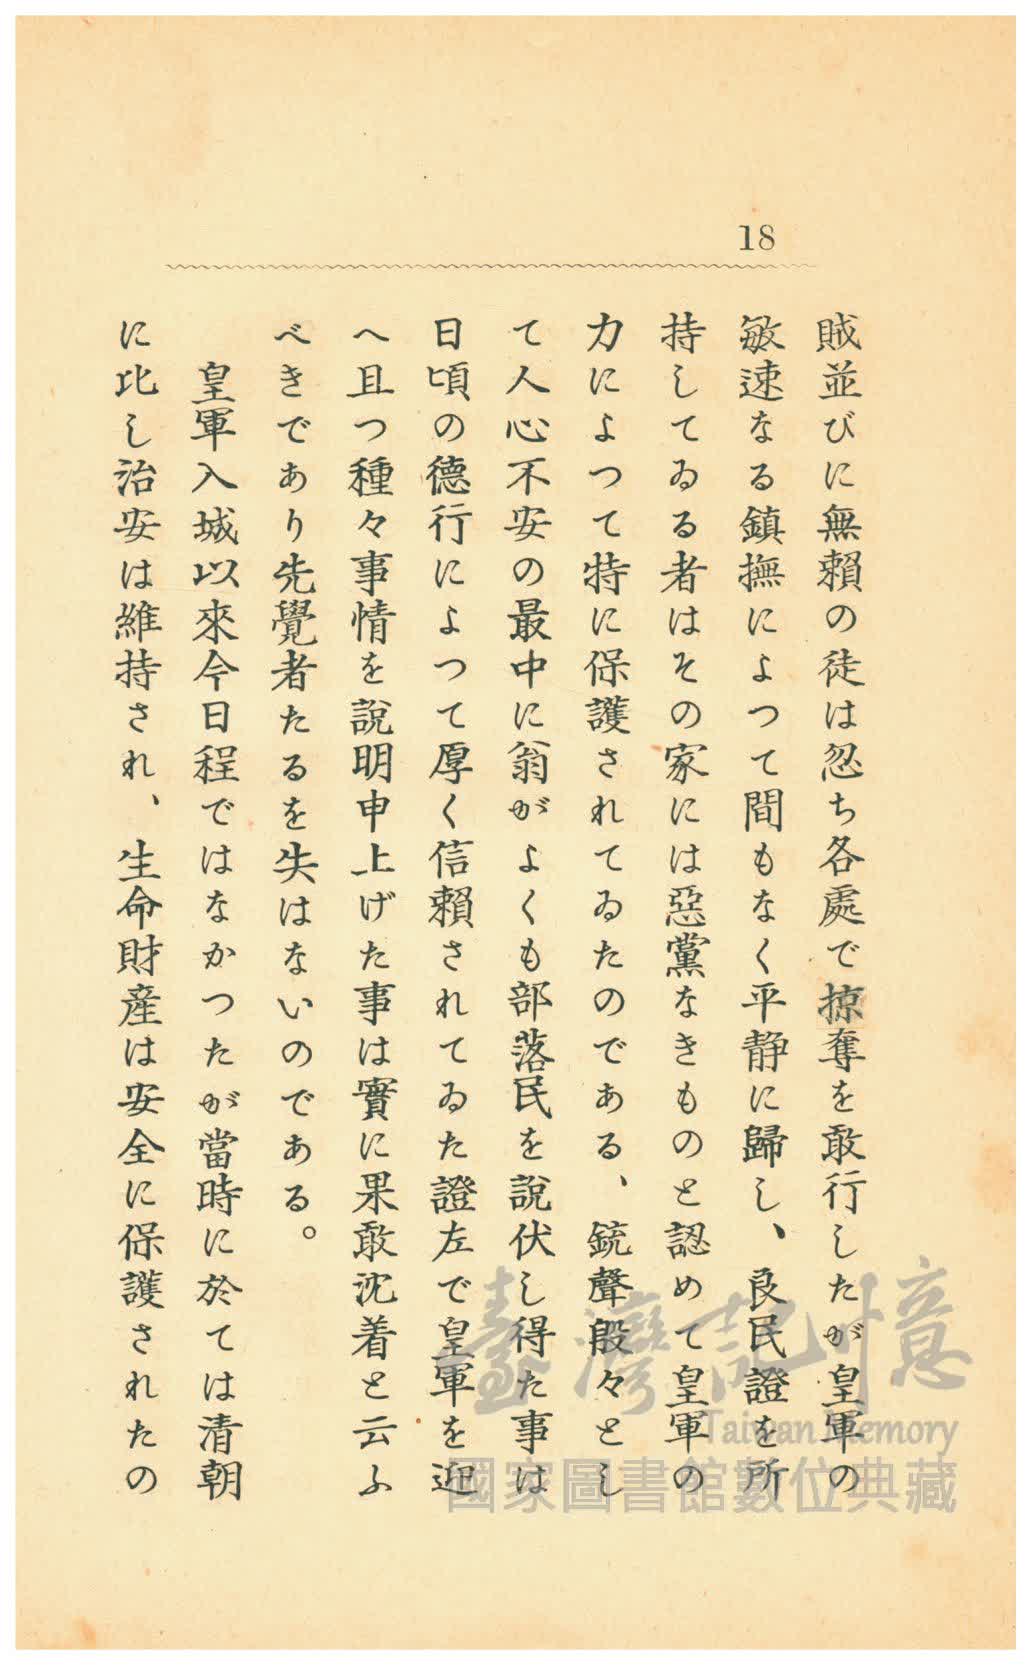 18
賊並びに無賴の徒は忽ち各處で掠奪を敢行したが皇軍の
敏速なる鎮撫によつて間もなく平静に歸し、良民證を所
持してゐる者はその家には惡黨なきものと認めて皇軍の
力によつて特に保護されてゐたのである、銃聲殷々とし
て人心不安の最中に翁がよくも部落民を說伏し得た事は
日頃の德行によつて厚く信賴されてゐた證左で皇軍を迎
へ且つ種々事情を說明申上げた事は實に果敢沈着と云ふ
べきであり先覺者たるを失はないのである。
皇軍入城以來今日程ではなかつたが當時に於ては清朝
に比し治安は維持され、生命財産は安全に保護されたの
臺灣記憶
Taiwan Memory
國家圖書館數位典藏